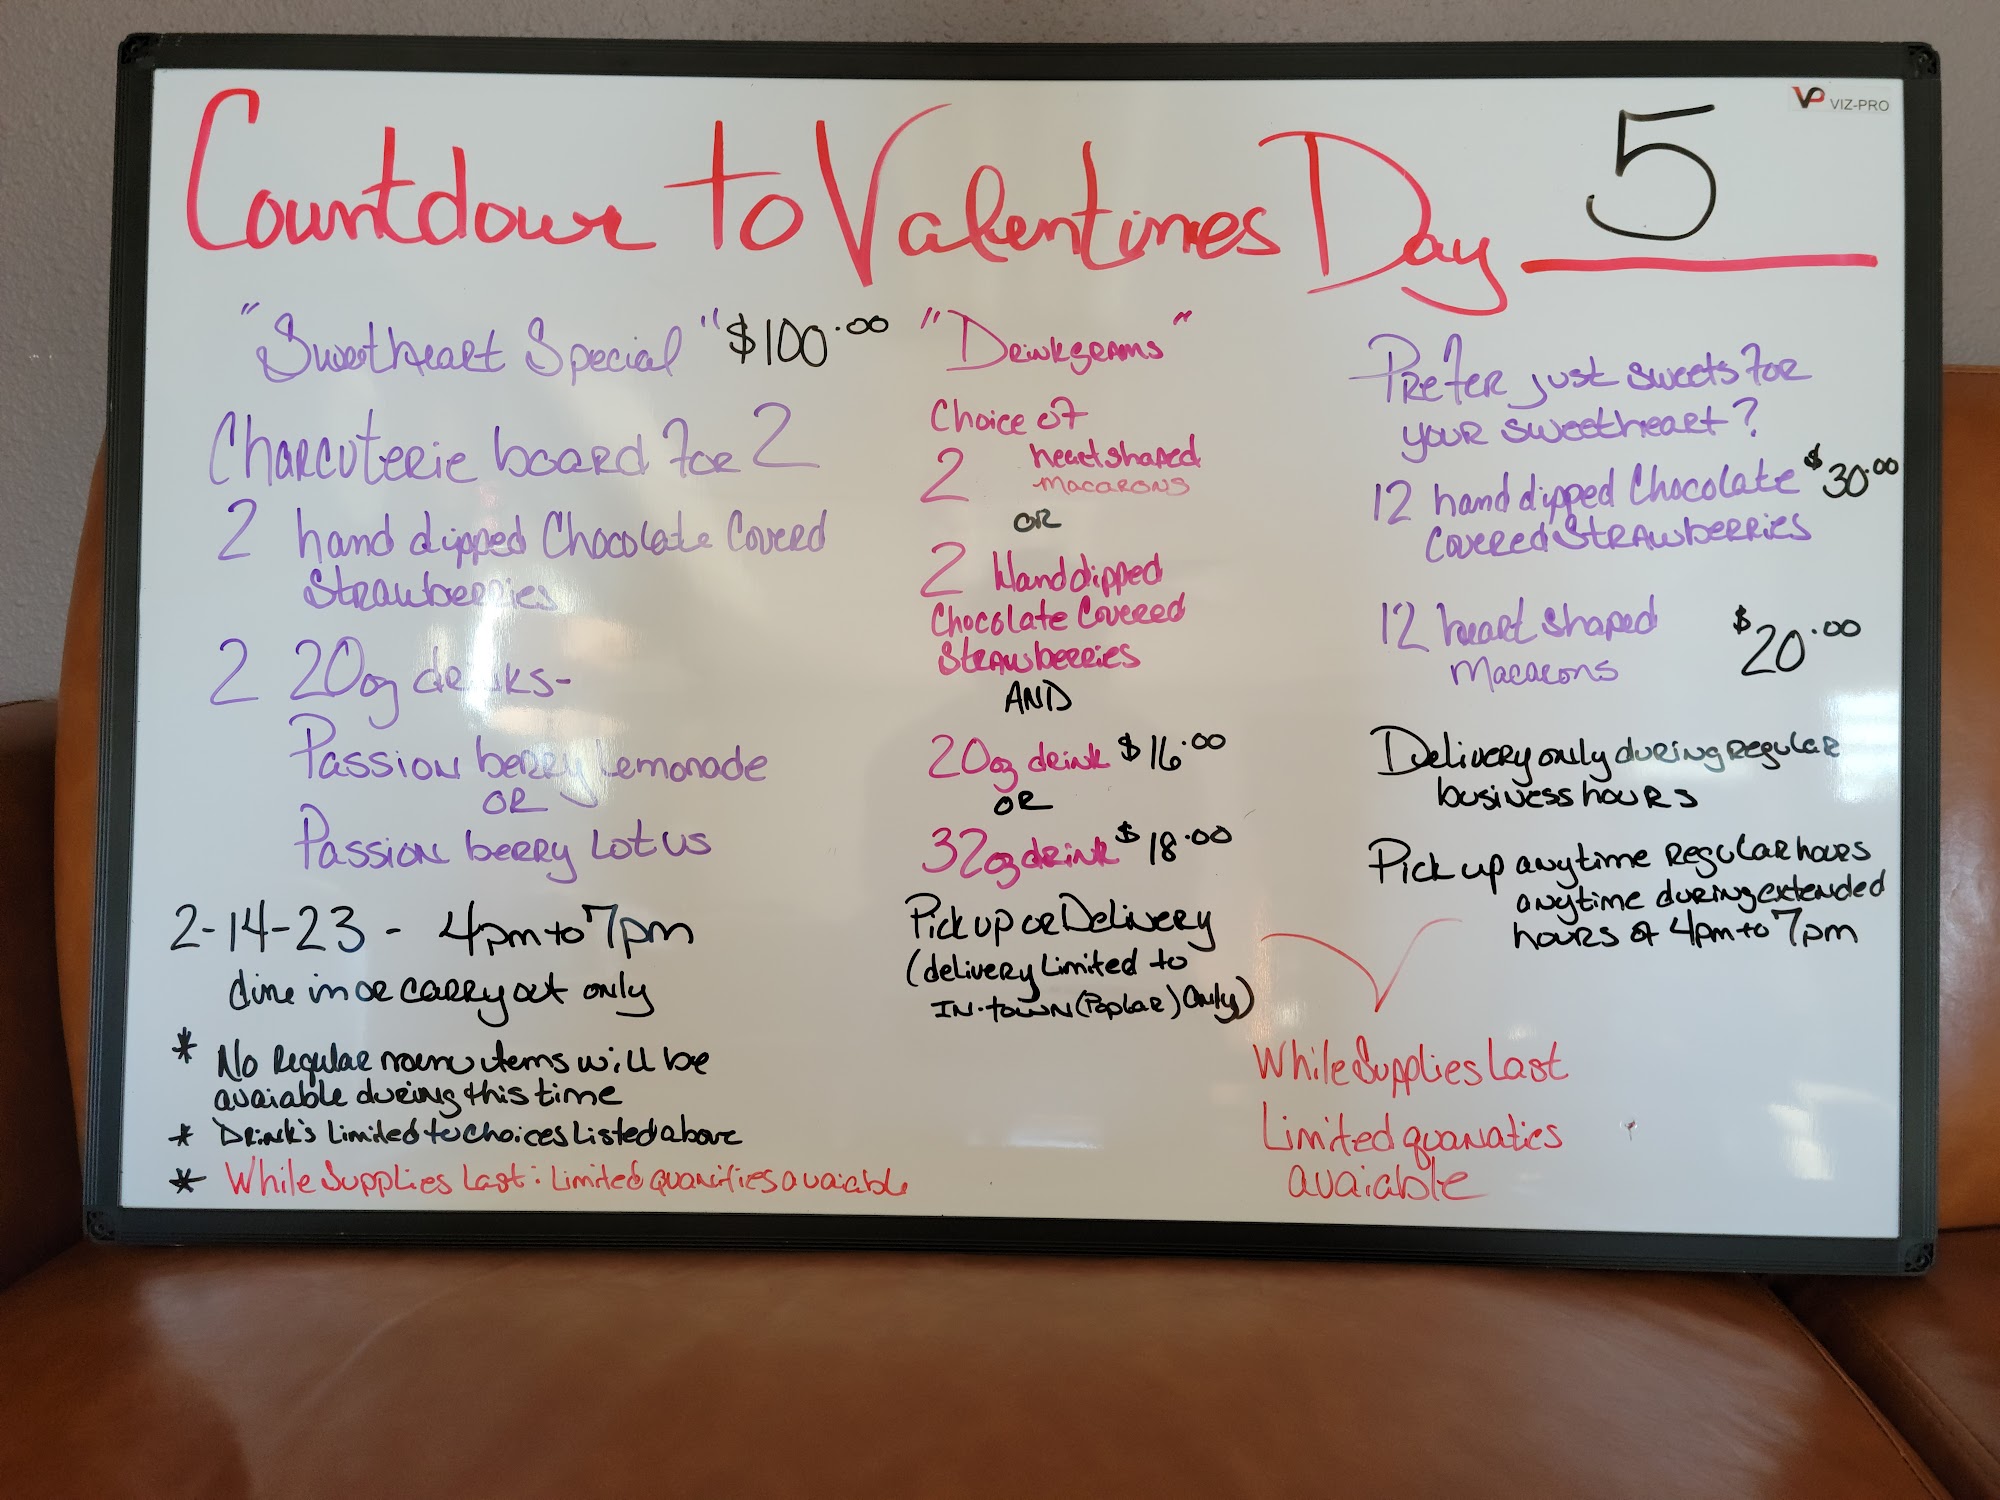 Countdown to Valentines Day 5
VIZ-PRO
"Sweetheart Special" $100.00
Charcuterie board for 2
2 hand dipped Chocolate Covered
Strawberries
2 20oz drinks-
Passion berry Lemonade
OR
Passion berry Lotus
2-14-23 - 4pm to 7pm
dine in or carry out only
* No Regular menu items will be
avaiable during this time
* Drink's Limited to Choices Listed above
* While Supplies Last: Limited quanities avaiable
"Drinkgrams"
Choice of
2 heart shaped
macarons
OR
2 Hand dipped
Chocolate Covered
Strawberries
AND
20oz drink $16.00
OR
32oz drink $18.00
Pick up or Delivery
(delivery Limited to
IN-town (Poplar) Only)
Prefer just sweets for
your sweetheart?
12 hand dipped Chocolate $30.00
Covered Strawberries
12 heart shaped
Macarons $20.00
Delivery only during regular
business hours
Pick up anytime Regular hours
anytime during extended
hours of 4pm to 7pm
While Supplies Last
Limited quanaties
avaiable